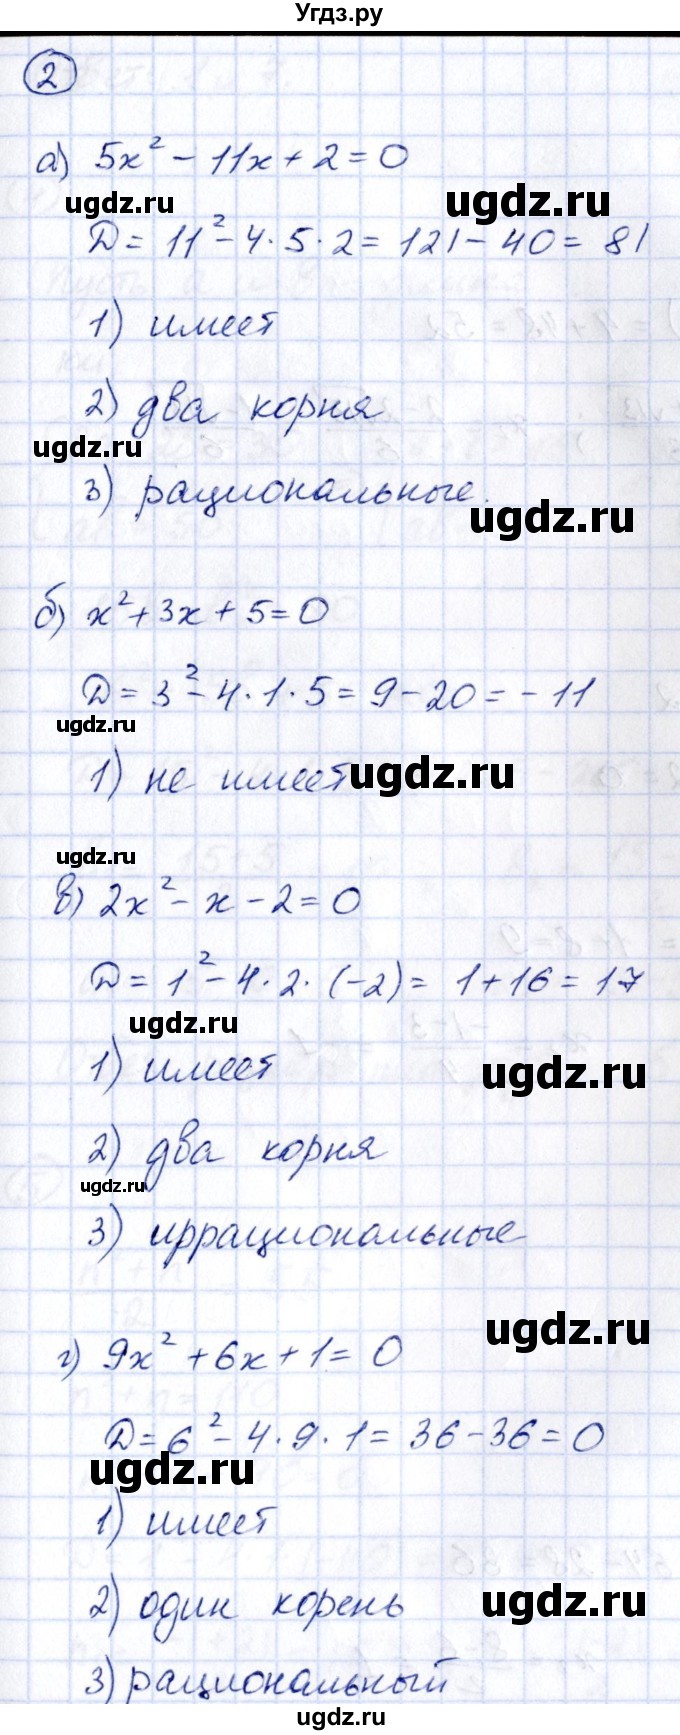 Угдз.ру
2
а) 5x² - 11x + 2 = 0
ugdz.ru ugdz.ru
D = 11² - 4 · 5 · 2 = 121 - 40 = 81
1) имеет
2) два корня
ugdz.ru
3) рациональные.
ugdz.ru
б) x² + 3x + 5 = 0
D = 3² - 4 · 1 · 5 = 9 - 20 = -11
ugdz.ru
1) не имеет
ugdz.ru
ugdz.ru
в) 2x² - x - 2 = 0
D = 1² - 4 · 2 · (-2) = 1 + 16 = 17
ugdz.ru
1) имеет
ugdz.ru
2) два корня
ugdz.ru
3) иррациональные
ugdz.ru
г) 9x² + 6x + 1 = 0
D = 6² - 4 · 9 · 1 = 36 - 36 = 0
ugdz.ru
1) имеет
2) один корень
ugdz.ru
3) рациональный
ugdz.ru